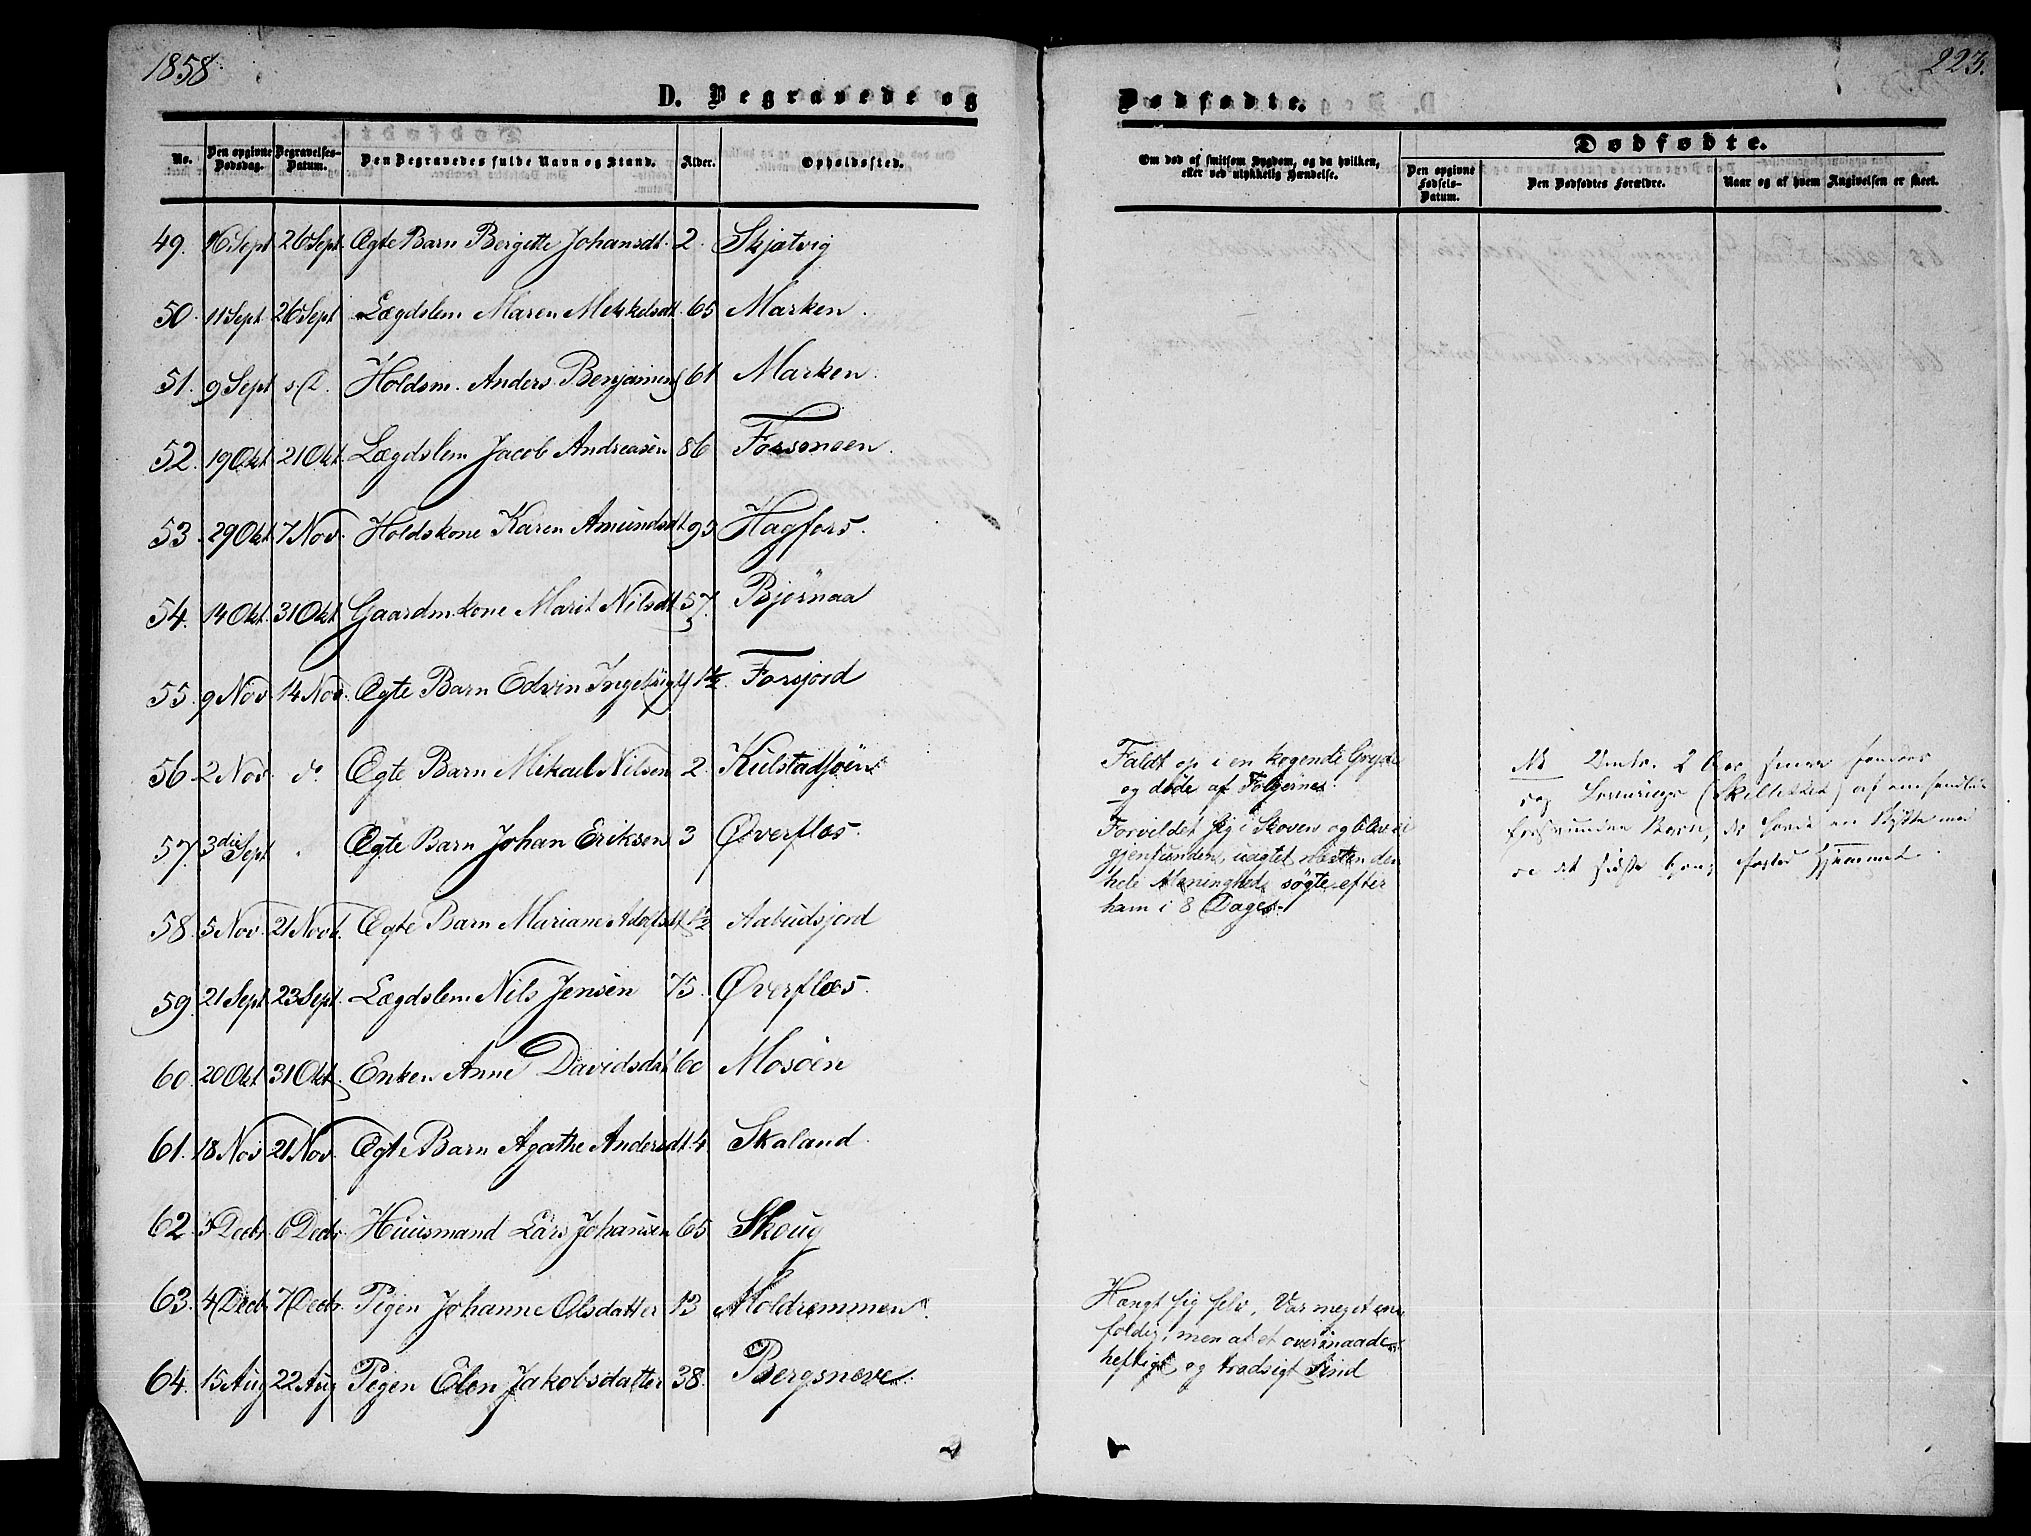 1858
223.
D. Begravede og
Dødfødte.
No.
Den opgivne Dødsdag.
Begravelses-Datum.
Den Begravedes fulde Navn og Stand.
Alder.
Opholdssted.
Om død af smitsom Sygdom, og da hvilken,
eller ved ulykkelig Hændelse.
Dødfødte.
Den opgivne Fødsels-Datum.
Den Dødfødtes Forældre.
Naar og af hvem Angivelsen er skeet.
49. 16 Sept 26 Sept. Ægte Barn Bergitte Johansdt. 2. Skjatvig
50. 11 Sept 26 Sept Lægdslem Maren Mikkelsdt. 65 Marken.
51. 9 Sept s. D. Holdsm. Anders Benjamins 61 Marken.
52. 19 Okt. 21 Okt. Lægdslem Jacob Andreasen 86 Forsmoen.
53. 29 Okt 7 Nov. Holdskone Karen Amundsdt. 93 Hagfors.
54. 14 Okt. 31 Okt. Gaardm.kone Marit Nilsdt 57. Bjørnaa
55. 9 Nov. 14 Nov. Ægte Barn Edvin 1½. Forsjord
56. 2 Nov. do Ægte Barn Mikael Nilsen 2. Kulstadsjøen
Faldt op i en kogende Gryde
og døde af Følgerne.
57. 3die Sept Ægte Barn Johan Eriksen 3 Øverflæs.
Forvildet sig i Skoven og blev ei
gjenfunden, uagtet næsten den
hele Menighed søgte efter
ham i 8 Dage.
58. 5 Nov. 21 Novb. Ægte Barn Mariane Adolfsdt. 1½ Aabudsjord
59. 21 Sept. 23 Sept. Lægdslem Nils Jensen 75. Øverflæs.
60. 20 Okt 31 Okt. Enken Anne Davidsdat 60 Mosøen
61. 18 Nov 21 Nov. Ægte Barn Agathe Andersdt. 4 Skaland.
62. 3 Decbr. 6 Decbr. Huusmand Lars Johansen 65 Skoug
63. 4 Decbr. 7 Decbr. Pigen Johanne Olsdatter 13 Moldremmen.
Hængt sig selv. Var meget een-
foldig, men af et overmaade
heftigt og tradsigt Sind
64. 15 Aug 22 Aug Pigen Elen Jakobsdatter 38. Bergsneve.